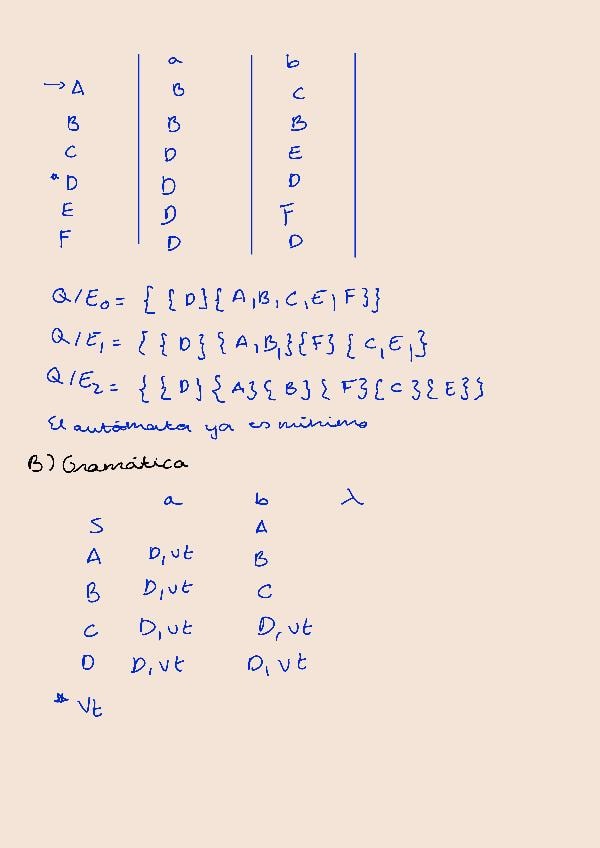 a b
→ A B C
B B B
C D E
* D D D
E D F
F D D
Q/E₀ = { {D} {A,B,C,E,F}}
Q/E₁ = { {D} {A,B,} {F} {C,E,}
Q/E₂ = { {D} {A} {B} {F} {C} {E}}
El autómata ya es mínimo
B) Gramática
a b λ
S A
A D,vt B
B D,vt C
C D,vt D,vt
D D,vt D,vt
* Vt